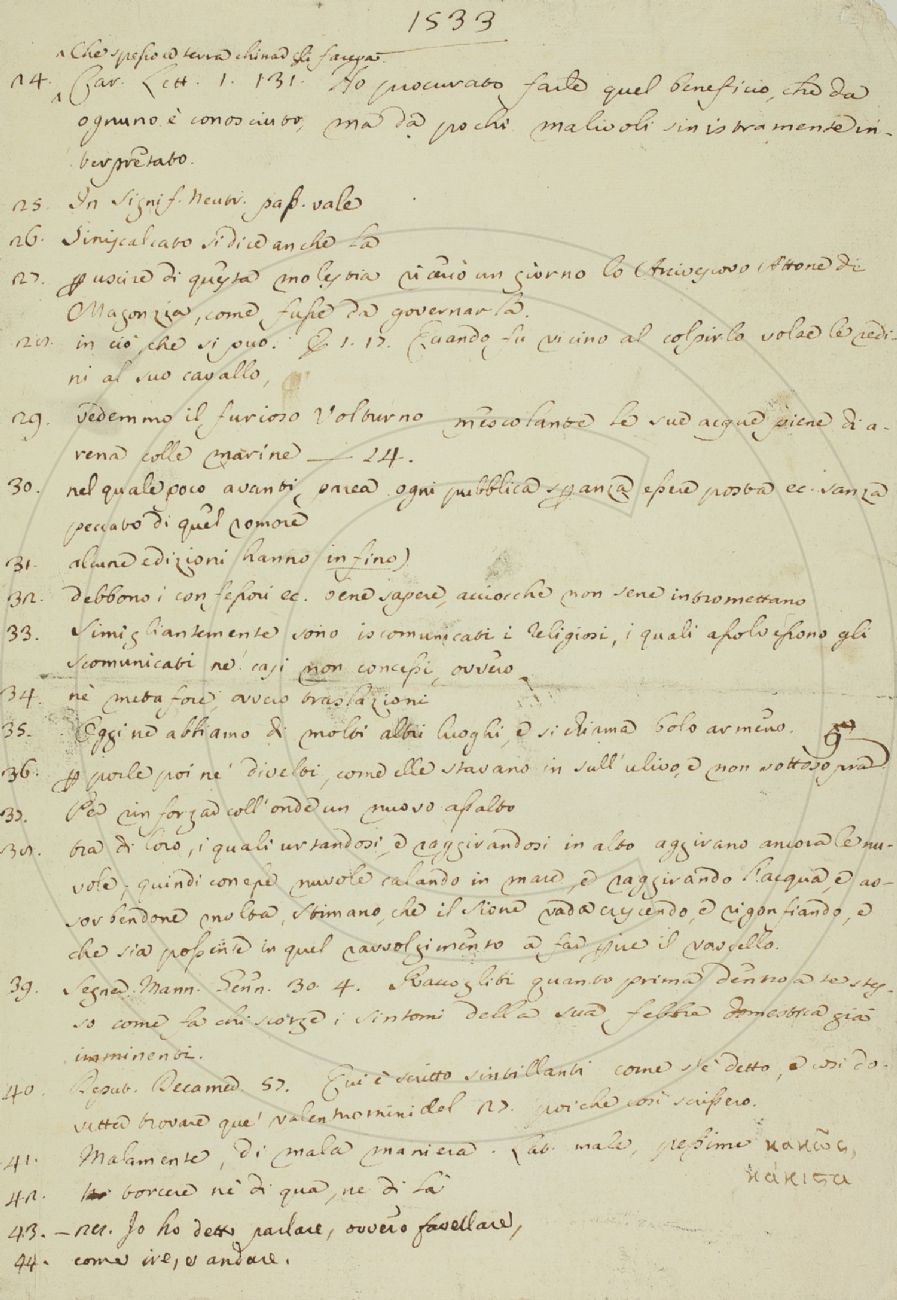 1533
^ Che spesso a terra chinar gli faceva
24. ^ Car. Lett. 1. 131. Ho procurato farle quel beneficio, che da
ognuno è conosciuto, ma da pochi malivoli sinistramente in-
terpretato.
25. In signif. neutr. pass. vale
26. Siniscalcato si dice anche la
27. uscire di questa molestia un giorno lo Arcivescovo Attone di
Magonzia, come fusse da governarla.
28. in ciò che si può. E 1. 17. Quando fu vicino al colpirlo volse le redi-
ni al suo cavallo,
29. vedemmo il furioso Volturno mescolante le sue acque piene di a-
rena colle marine — 24.
30. nel quale poco avanti parea ogni pubblica speranza essere posta ec. sanza
peccato di quel romore
31. alcune edizioni hanno in fino)
32. debbono i confessori ec. bene sapere, acciocchè non sene intromettano
33. Simigliantemente sono iscomunicati i religiosi, i quali assolvessono gli
scomunicati ne' casi non concessi, ovvero
34. nè metafore, ovvero traslazioni
35. Eggine abbiamo di molti altri luoghi, e si chiama bolo armeno.
36. porle poi ne' divelti, come elle stavano in sull'ulivo, e non sottosopra
37. Per rinforzar coll'onde un nuovo assalto
38. tra di loro, i quali urtandosi, e raggirandosi in alto aggirano ancora le nu-
vole; quindi con esse nuvole calando in mare, e raggirando l'acqua, e as-
sorbendone molta, stimano, che il sione vada crescendo, e rigonfiando, e
che sia possente in quel ravvolgimento a far il vascello.
39. Segner. Mann. Genn. 30. 4. Raccogliti quanto prima dentro a te stes-
so come fa chi scorge i sintomi della sua febbre domestica già
imminenti.
40. Deput. Decamer. 57. Qui è scritto sintillanti come s'è detto, e così do-
vette trovare que' valentuomini del 27. poichè così scrissero.
41. Malamente, di mala maniera. Lat. male, pessime κακῶς,
κάκιστα
42. torcere nè di qua, ne di là
43. — rer. Io ho detto parlare, ovvero favellare,
44. come ire, e andare.